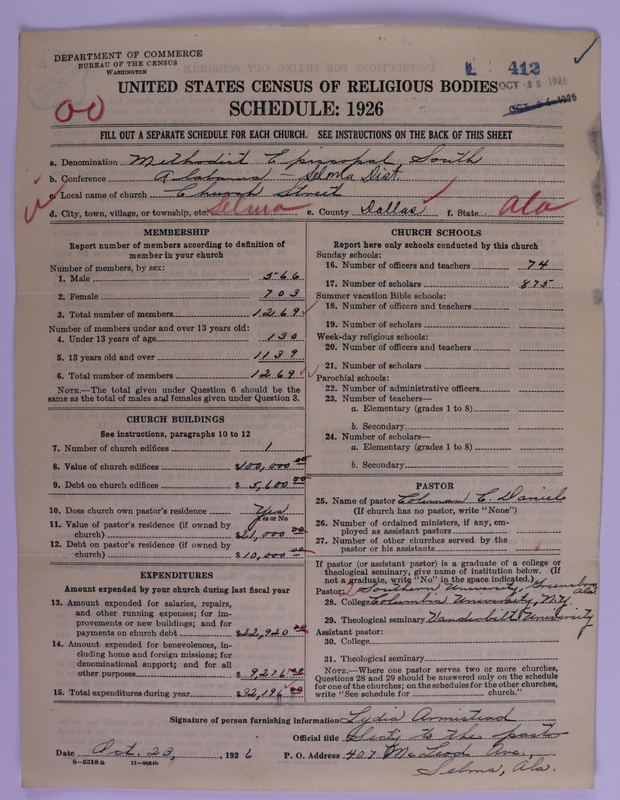 DEPARTMENT OF COMMERCE
BUREAU OF THE CENSUS
WASHINGTON
412
OCT 25 1926
OCT 26 1926
UNITED STATES CENSUS OF RELIGIOUS BODIES
SCHEDULE: 1926
OO
FILL OUT A SEPARATE SCHEDULE FOR EACH CHURCH. SEE INSTRUCTIONS ON THE BACK OF THIS SHEET
a. Denomination Methodist Episcopal, South
b. Conference Alabama - Selma Dist.
c. Local name of church Church Street
d. City, town, village, or township, etc. Selma e. County Dallas f. State Ala
MEMBERSHIP
Report number of members according to definition of
member in your church
Number of members, by sex:
1. Male 566
2. Female 703
3. Total number of members 1269
Number of members under and over 13 years old:
4. Under 13 years of age 130
5. 13 years old and over 1139
6. Total number of members 1269
NOTE.—The total given under Question 6 should be
same as the total of males and females given under Question 3.
CHURCH BUILDINGS
See instructions, paragraphs 10 to 12
7. Number of church edifices 1
8. Value of church edifices $100,000.00
9. Debt on church edifices $5,600.00
10. Does church own pastor's residence Yes
Yes or No
11. Value of pastor's residence (if owned by
church) $21,000.00
12. Debt on pastor's residence (if owned by
church) $10,000.00
EXPENDITURES
Amount expended by your church during last fiscal year
13. Amount expended for salaries, repairs,
and other running expenses; for im-
provements or new buildings; and for
payments on church debt $22,940.00
14. Amount expended for benevolences, in-
cluding home and foreign missions; for
denominational support; and for all
other purposes $9,256.00
15. Total expenditures during year $32,196.00
CHURCH SCHOOLS
Report here only schools conducted by this church
Sunday schools:
16. Number of officers and teachers 74
17. Number of scholars 875
Summer vacation Bible schools:
18. Number of officers and teachers
19. Number of scholars
Week-day religious schools:
20. Number of officers and teachers
21. Number of scholars
Parochial schools:
22. Number of administrative officers
23. Number of teachers—
a. Elementary (grades 1 to 8)
b. Secondary
24. Number of scholars—
a. Elementary (grades 1 to 8)
b. Secondary
PASTOR
25. Name of pastor Coleman C. Daniel
(If church has no pastor, write "None")
26. Number of ordained ministers, if any, em-
ployed as assistant pastors
27. Number of other churches served by the
pastor or his assistants
If pastor (or assistant pastor) is a graduate of a college or
theological seminary, give name of institution below. (If
not a graduate, write "No" in the space indicated.)
Pastor: Southern University, Greensboro, Ala.
28. College Columbia University, N.Y.
29. Theological seminary Vanderbilt University
Assistant pastor:
30. College
31. Theological seminary
NOTE.—Where one pastor serves two or more churches,
Questions 28 and 29 should be answered only on the schedule
for one of the churches; on the schedules for the other churches,
write "See schedule for church."
Signature of person furnishing information Lydia Armistead
Official title Sec'ty to the pastor
Date Oct. 23, 1926 P. O. Address 407 McLeod Ave.,
8—5518a 11—9024b
Selma, Ala.